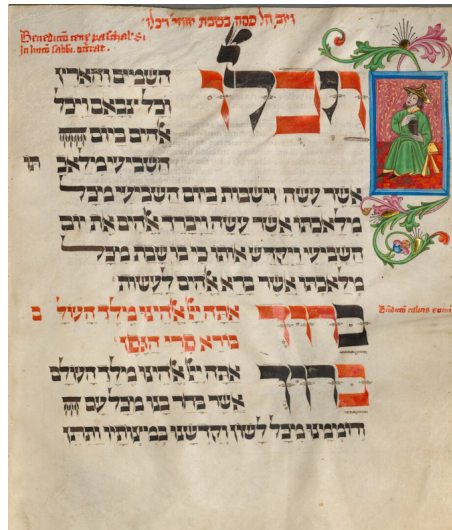 חל פסח בשבת ויכלו
Si
In
ויכלו השמים והארץ
וכל צבאם ויכל
אלדים ביום
השביעי מלאכ
תו
אשר עשה וישבות ביום השביעי מכל
מלאכתו אשר עשה ויברך אלדים את יום
השביעי ויקדש אותו כי בו שבת מכל
מלאכתו אשר ברא אלדים לעשות
ברוך אתה יי אלדינו מלך העול ם
בורא פרי הגפן
ברוך אתה יי אלדינו מלך העולם
אשר בחר בנו מכל עם
ורוממנו מכל לשון וקדשנו במצותיו ותתן